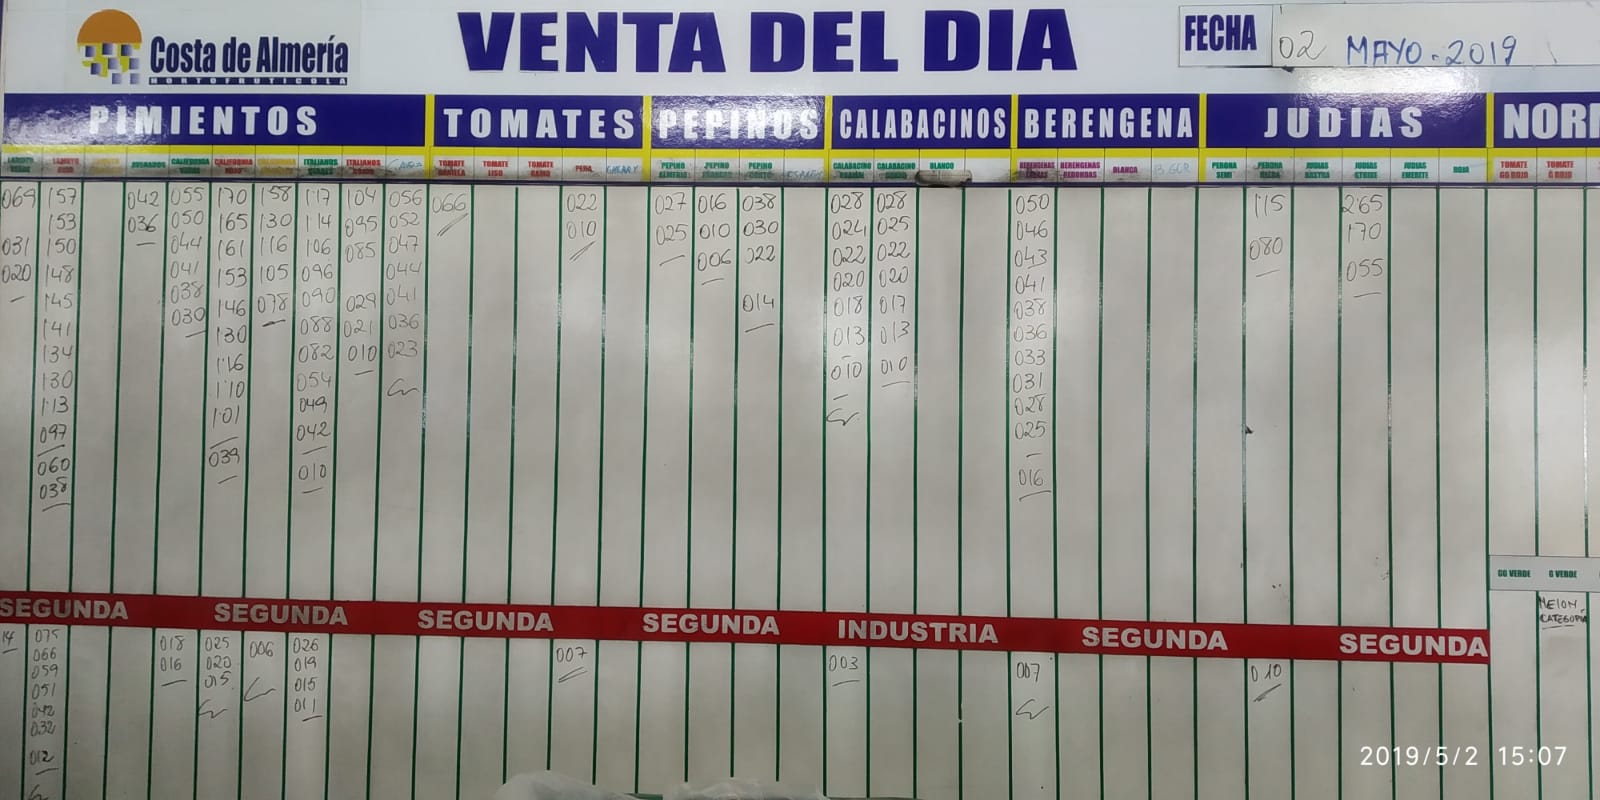 Costa de Almería
HORTOFRUTICOLA
VENTA DEL DIA
FECHA
02 MAYO-2019
PIMIENTOS
TOMATES
PEPINOS
CALABACINOS
BERENGENA
JUDIAS
NOR
CALIFORNIA CALIFORNIA ITALIANOS ITALIANOS
TOMATE TOMATE LISO TOMATE RAMO PERA CHERRY
PEPINO ALMERIA PEPINO FRANCES PEPINO CORTO
CALABACINO CALABACINO GORDO BLANCO
BERENGENAS BERENGENAS REDONDAS BLANCA
PERONA SEMI PERONA JUDIAS RASTRA JUDIAS STRIKE JUDIAS EMERITE ROJA
TOMATE GG ROJO TOMATE G ROJO
069 157 042 055 170 158 117 104 056 066 022 027 016 038 028 028 050 115 265
153 036 050 165 130 114 095 052 010 025 010 030 024 025 046 170
031 150 044 161 116 106 085 047 006 022 022 022 043 080
020 148 041 153 105 096 044 020 020 041 055
145 038 146 078 090 029 041 014 018 017 038
141 030 130 088 021 036 013 013 036
134 116 082 010 023 010 010 033
130 110 054 031
113 101 049 028
097 042 025
060 039 010 016
038
SEGUNDA SEGUNDA SEGUNDA SEGUNDA INDUSTRIA SEGUNDA SEGUNDA
GG VERDE G VERDE
MELON CATEGORIA
14 075 018 025 006 026 007 003 007 010
066 016 020 019
059 015 015
051 011
042
032
012
2019/5/2 15:07